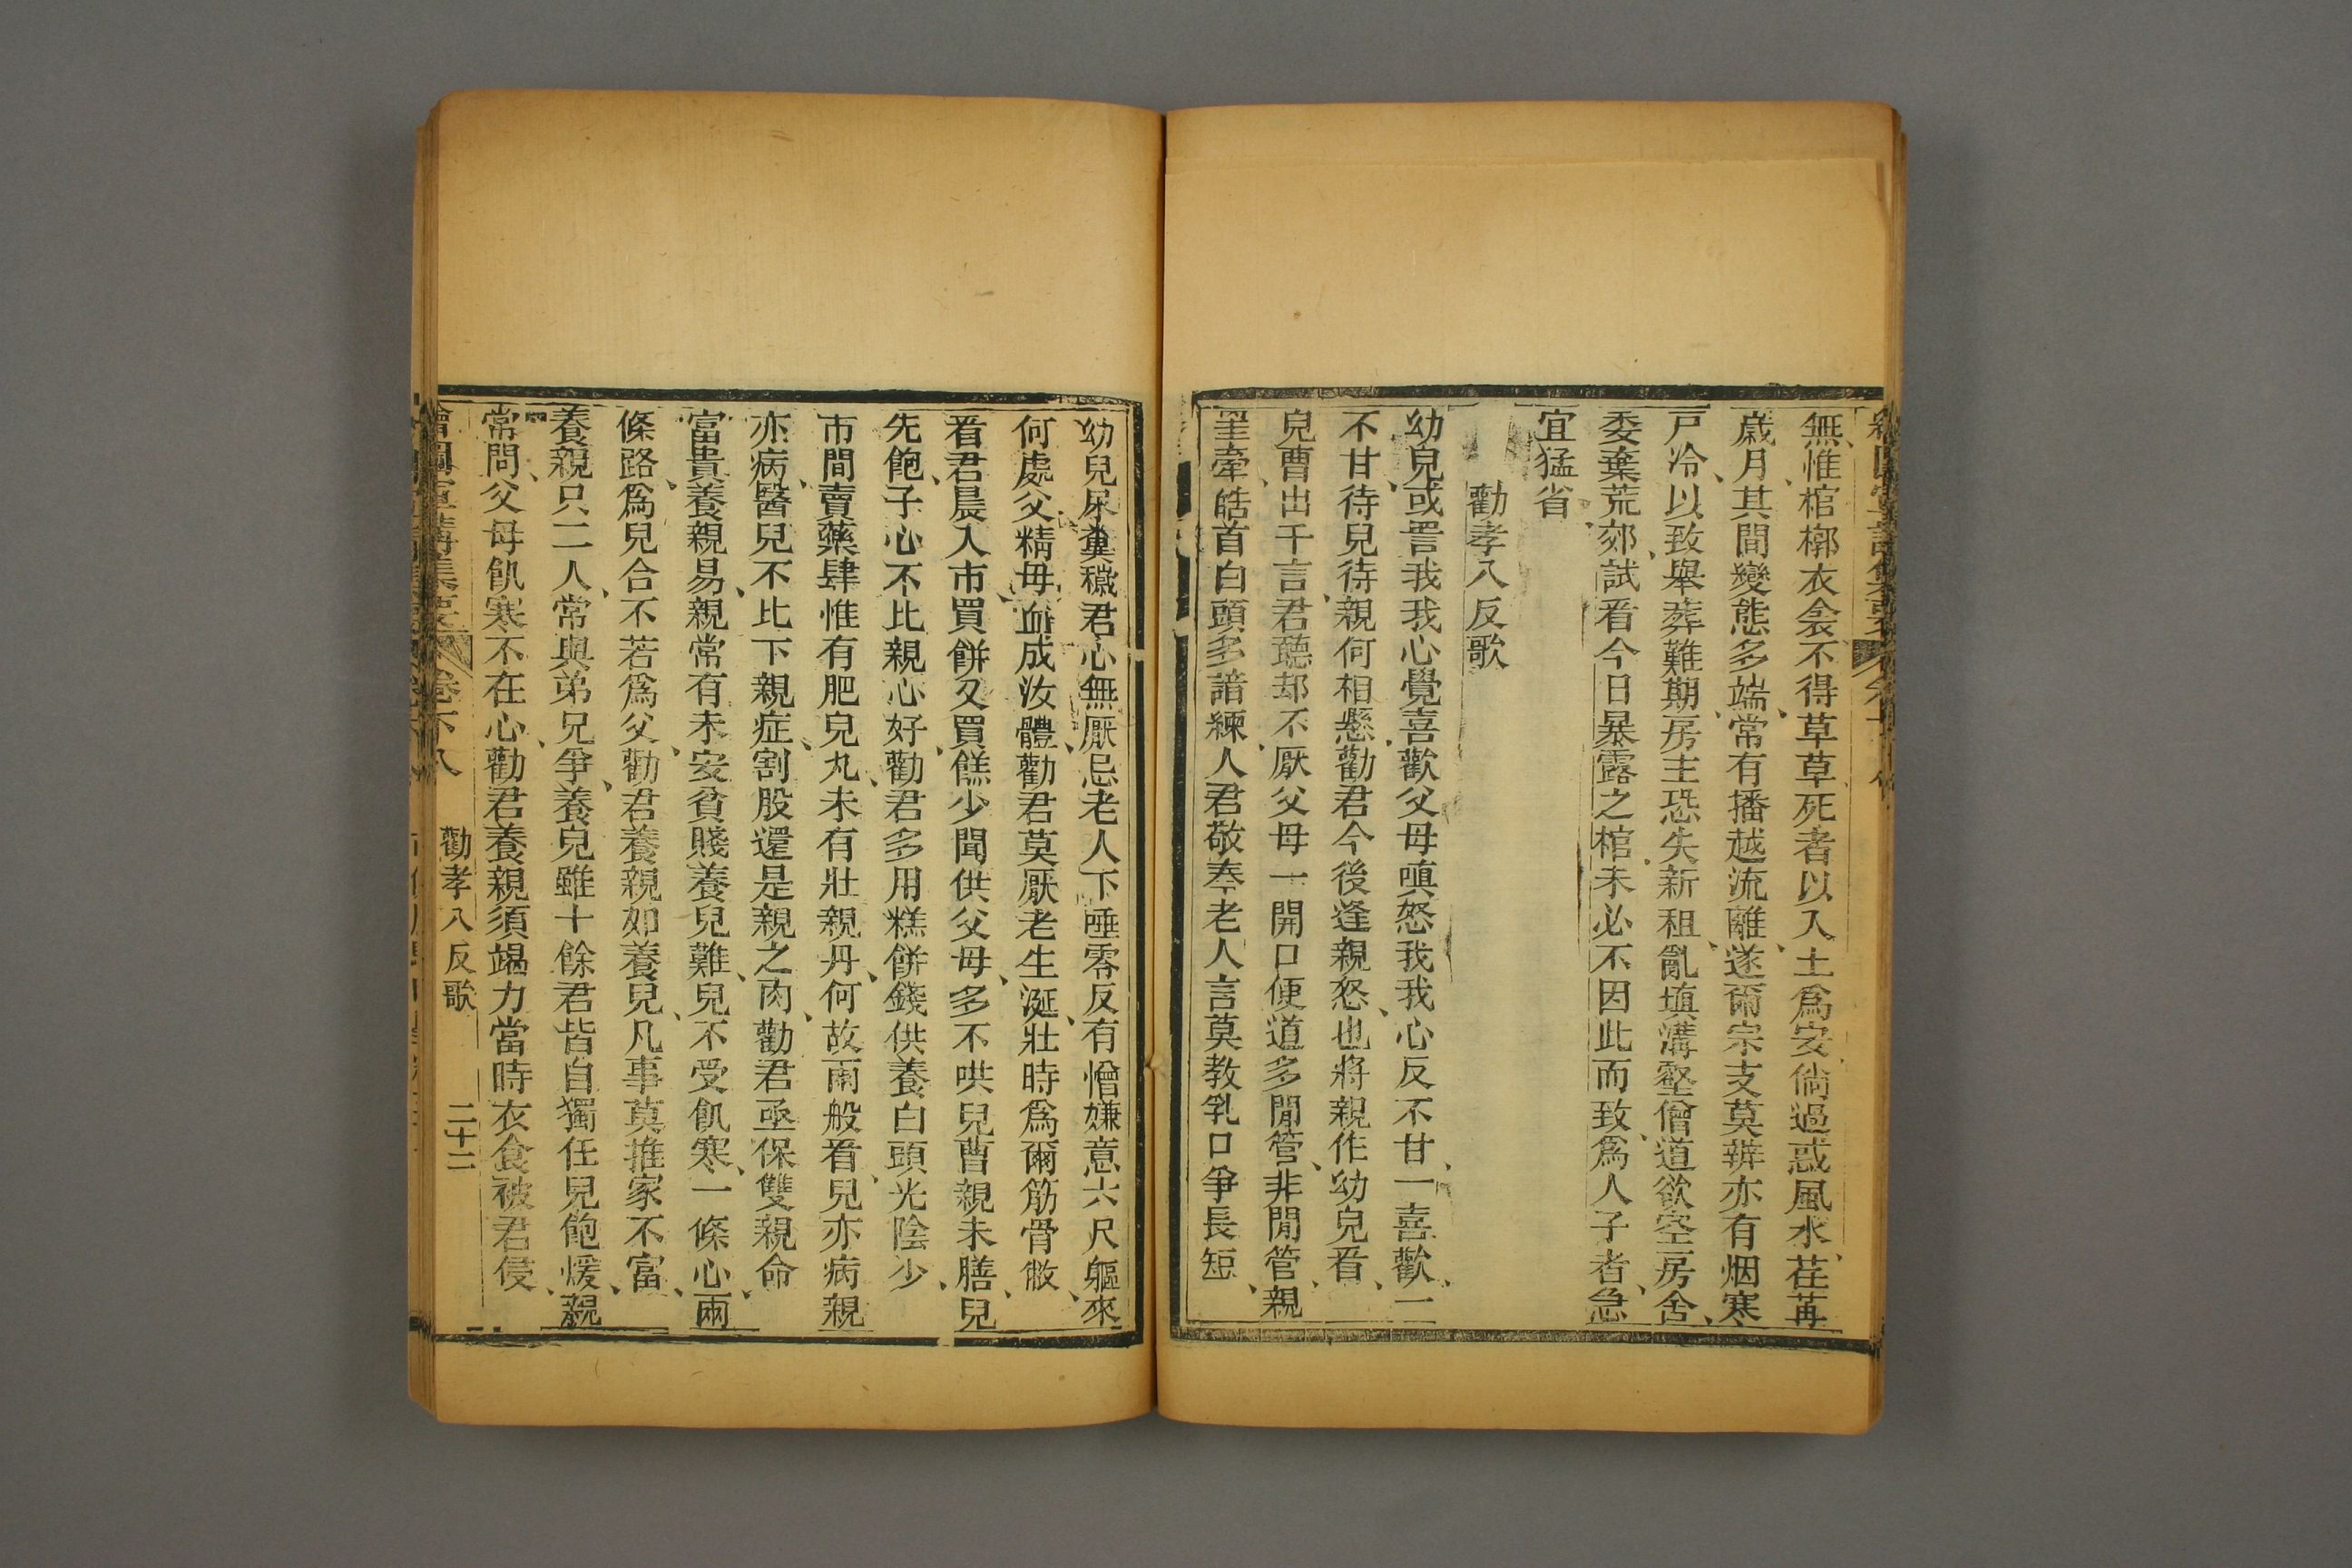 無惟棺槨衣衾不得草草死者以入土爲安倘過惑風水荏苒
歲月其間變態多端常有播越流離遂爾宗支莫辨亦有烟寒
戸冷以致舉葬難期房主恐失新租亂塡溝壑僧道欲空房舍
委棄荒郊試看今日暴露之棺未必不因此而致爲人子者急
宜猛省
勸孝八反歌
幼兒或詈我我心覺喜歡父母嗔怒我我心反不甘一喜歡一
不甘待兒待親何相懸勸君今後逢親怒也將親作幼兒看
兒曹出千言君聽却不厭父母一開口便道多閒管非閒管親
罣牽皓首白頭多諳練人君敬奉老人言莫教乳口爭長短
幼兒尿糞穢君心無厭忌老人下唾零反有憎嫌意六尺軀來
何處父精母血成汝體勸君莫厭老生涎壯時爲爾筋骨敝
看君晨入市買餅又買餻少聞供父母多不哄兒曹親未膳兒
先飽子心不比親心好勸君多用糕餅錢供養白頭光陰少
市間賣藥肆惟有肥兒丸未有壯親丹何故兩般看兒亦病親
亦病醫兒不比下親症割股還是親之肉勸君亟保雙親命
富貴養親易親常有未安貧賤養兒難兒不受飢寒一條心兩
條路爲兒合不若爲父勸君養親如養兒凡事莫推家不富
養親只二人常與弟兄爭養兒雖十餘君皆自獨任兒飽煖親
常問父母飢寒不在心勸君養親須竭力當時衣食被君侵
繪圖宣講集要 卷下八 勸孝八反歌 二十二